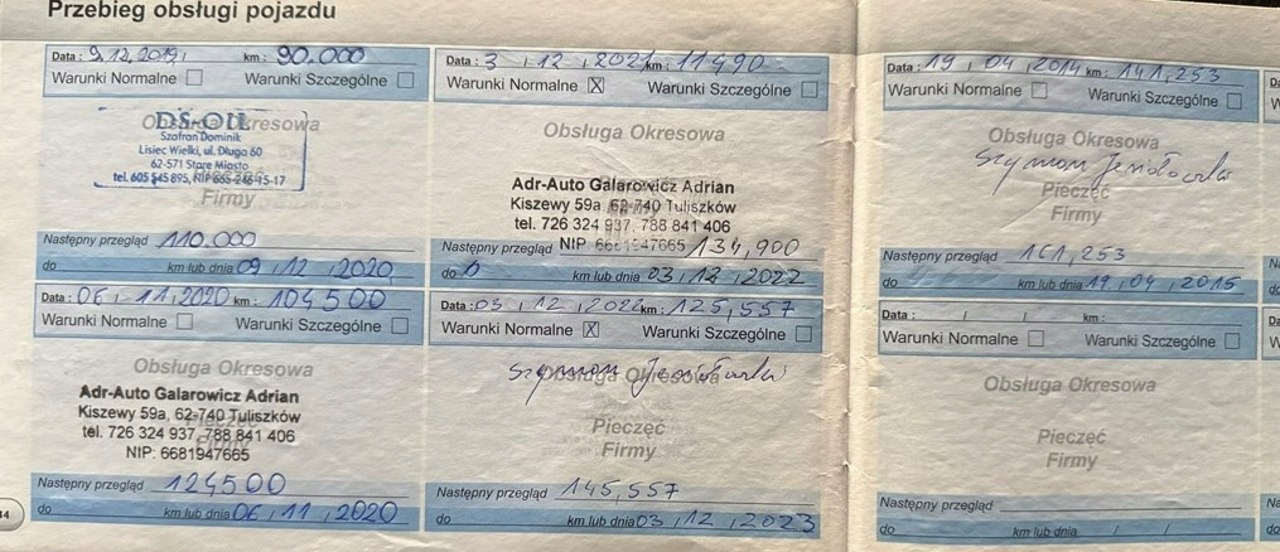 Przebieg obsługi pojazdu
Data : 9.12.2019, km : 90.000
Warunki Normalne Warunki Szczególne
Obsługa Okresowa
DS-OIL
Szafran Dominik
Lisiec Wielki, ul. Długa 60
62-571 Stare Miasto
tel. 605 545 895, NIP 665-246-15-17
Pieczęć
Firmy
Następny przegląd 110.000
do km lub dnia 09 , 12 , 2020
Data : 06 , 11 , 2020 km : 104500
Warunki Normalne Warunki Szczególne
Obsługa Okresowa
Adr-Auto Galarowicz Adrian
Kiszewy 59a, 62-740 Tuliszków
Pieczęć
tel. 726 324 937, 788 841 406
Firmy
NIP: 6681947665
Następny przegląd 124500
do km lub dnia 06 , 11 , 2020
34
Data : 3 , 12 , 2021 km : 11490
Warunki Normalne X Warunki Szczególne
Obsługa Okresowa
Pieczęć
Adr-Auto Galarowicz Adrian
Kiszewy 59a, 62-740 Tuliszków
Firmy
tel. 726 324 937, 788 841 406
NIP: 6681947665
Następny przegląd 134,900
do 0 km lub dnia 03 , 12 , 2022
Data : 03 , 12 , 2022 km : 125,557
Warunki Normalne X Warunki Szczególne
Obsługa Okresowa
Szymon
Pieczęć
Firmy
Następny przegląd 145,557
do km lub dnia 03 , 12 , 2023
Data : 19 , 04 , 2014 km : 141,253
Warunki Normalne Warunki Szczególne
Obsługa Okresowa
Szymon
Pieczęć
Firmy
Następny przegląd 161,253
do km lub dnia 19 , 04 , 2015
Data : / / km :
Warunki Normalne Warunki Szczególne
Obsługa Okresowa
Pieczęć
Firmy
Następny przegląd
do km lub dnia / /